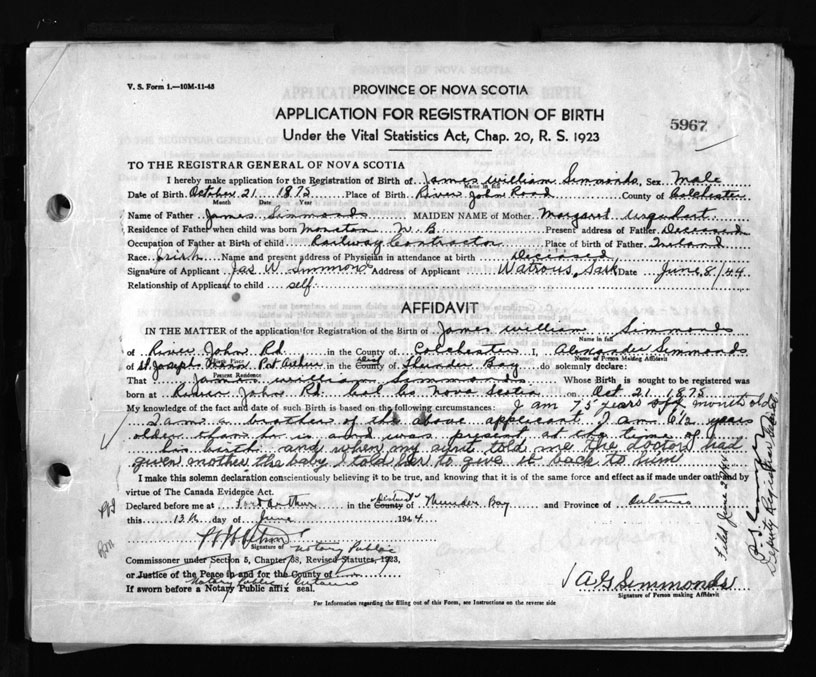 V. S. Form 1.—10M-11-43
PROVINCE OF NOVA SCOTIA
APPLICATION FOR REGISTRATION OF BIRTH
5967
Under the Vital Statistics Act, Chap. 20, R. S. 1923
TO THE REGISTRAR GENERAL OF NOVA SCOTIA
I hereby make application for the Registration of Birth of James William Simmonds, Sex Male
Name in full
Date of Birth October 21 1875 Place of Birth River John Road County of Colchester
Month Date Year
Name of Father James Simmonds MAIDEN NAME of Mother Margaret Urquhart
Residence of Father when child was born Moncton N.B. Present address of Father Deceased
Occupation of Father at Birth of child Railway Contractor Place of birth of Father Ireland
Race Irish Name and present address of Physician in attendance at birth Deceased
Signature of Applicant Jas W Simmonds Address of Applicant Watrous, Sask Date June 8/44
Relationship of Applicant to child self
AFFIDAVIT
IN THE MATTER of the application for Registration of the Birth of James William Simmonds
Name in full
of River John Rd. in the County of Colchester I, Alexander Simmonds
Name of Person Making Affidavit
of St. Joseph's Port Arthur in the County of Thunder Bay do solemnly declare:
Present Residence
That James William Simmonds Whose Birth is sought to be registered was
born at River John Rd Col Co Nova Scotia on Oct 21 1875
My knowledge of the fact and date of such Birth is based on the following circumstances: I am 75 years old
I am a brother of the above applicant I am 6½ years
older than he is and was present at the time of
his birth and when my aunt told me the doctor had
given mother the baby I told her to give it back to him
I make this solemn declaration conscientiously believing it to be true, and knowing that it is of the same force and effect as if made under oath and by
virtue of The Canada Evidence Act.
Declared before me at Port Arthur in the County District of Thunder Bay and Province of Ontario
this 13th day of June 1944
Signature of Notary Public
Commissioner under Section 5, Chapter 38, Revised Statutes, 1923,
or Justice of the Peace in and for the County of
Notary Public Ontario
If sworn before a Notary Public affix seal.
A G Simmonds
Signature of Person making Affidavit
For Information regarding the filling out of this Form, see Instructions on the reverse side
Filed June
Deputy Registrar